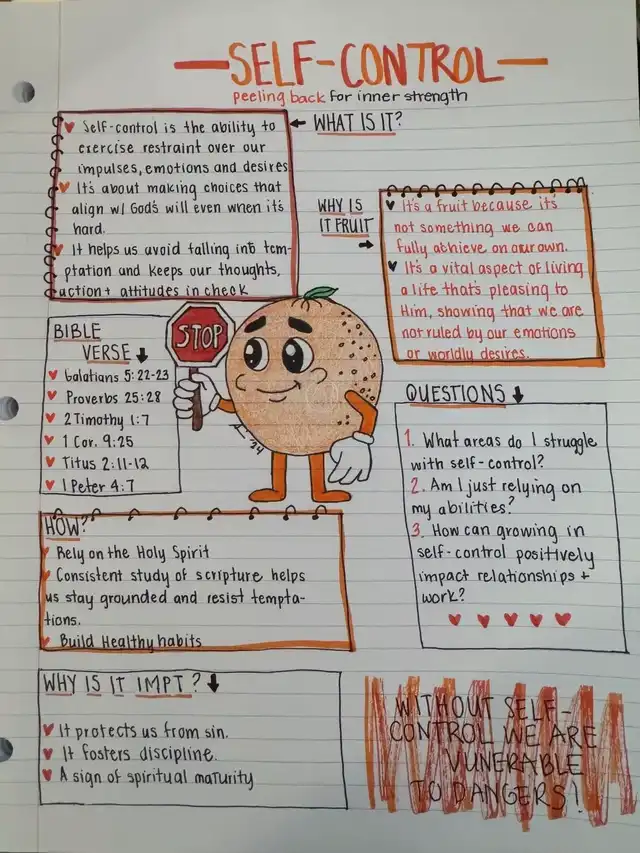 SELF-CONTROL
peeling back for inner strength
← WHAT IS IT?
♥ Self-control is the ability to
exercise restraint over our
impulses, emotions and desires
♥ It's about making choices that
align w/ God's will even when it's
hard.
♥ It helps us avoid falling into tem-
ptation and keeps our thoughts,
action + attitudes in check
WHY IS
IT FRUIT
→
♥ It's a fruit because it's
not something we can
fully achieve on our own.
♥ It's a vital aspect of living
a life that's pleasing to
Him, showing that we are
not ruled by our emotions
or worldly desires.
STOP
BIBLE
VERSE ↓
♥ Galatians 5:22-23
♥ Proverbs 25:28
♥ 2 Timothy 1:7
♥ 1 Cor. 9:25
♥ Titus 2:11-12
♥ 1 Peter 4:7
QUESTIONS ↓
1. What areas do I struggle
with self-control?
2. Am I just relying on
my abilities?
3. How can growing in
self-control positively
impact relationships +
work?
HOW?
♥ Rely on the Holy Spirit
♥ Consistent study of scripture helps
us stay grounded and resist tempta-
tions.
♥ Build Healthy habits
WHY IS IT IMPT? ↓
♥ It protects us from sin.
♥ It fosters discipline.
♥ A sign of spiritual maturity
WITHOUT SELF-
CONTROL WE ARE
VUNERABLE
TO DANGERS!